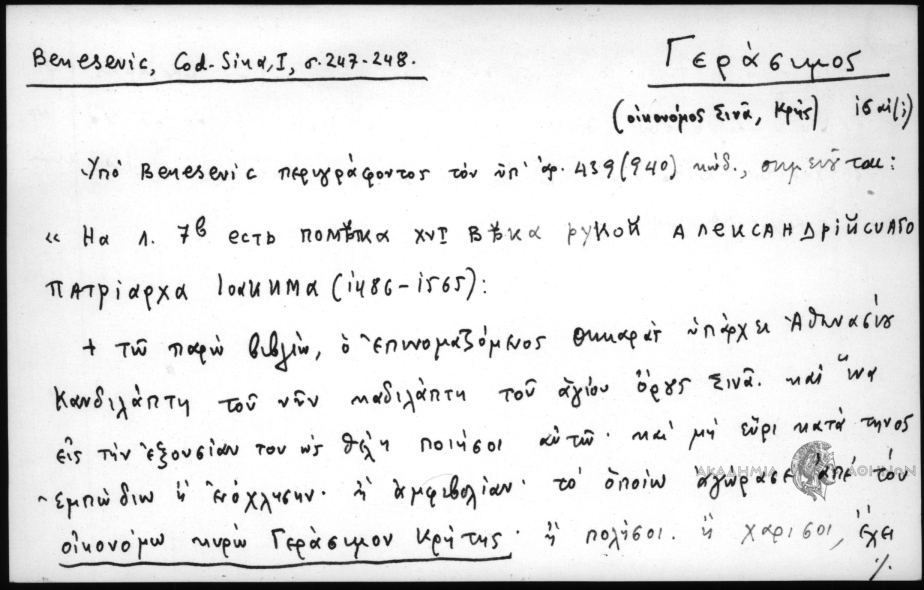 Benesevic, Cod. Sina, I, σ. 247-248.
Γεράσιμος
(οἰκονόμος Σινᾶ, Κρής) ις αἰ(;)
Ὑπό Benesevic περιγράφοντος τόν ὑπ' ἀρ. 439 (940) κώδ., σημειοῦται:
« На л. 7в есть помѣтка XVI вѣка рукой Александрійскаго
Патріарха Іоакима (1486-1565):
+ τῶ παρῶ βιβλίω, ὁ ἐπινομαζόμενος θηκαρᾶς ὑπάρχει Ἀθηνασίου
Κανδιλάπτη τοῦ νῦν καδιλάπτη τοῦ ἁγίου ὄρους Σινᾶ. καί ἵνα
εἰς τήν ἐξουσίαν του ὡς θέλη ποιήσοι αὐτῶ· καί μή εὕρι κατά τηνος
ἐμπώδιω ἤ ἐνόχλησην· ἤ ἀμφιβολίαν· τό ὁποίω ἀγώρασε ἀπέ τόν
οἰκονόμω κυρῶ Γεράσιμον Κρήτης· ἤ πολήσοι. ἤ χαρίσοι, ἔχει
ΑΚΑΔΗΜΙΑ ΑΘΗΝΩΝ
./.